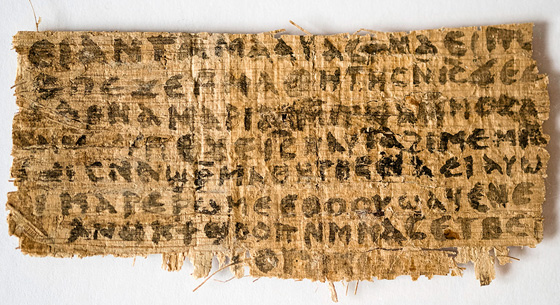 ⲉⲓ ⲁⲛ ⲧⲁⲙⲁⲁⲩ ⲁⲥϯ ⲛⲁⲉⲓ
ⲡⲉϫⲉ ⲙⲙⲁⲑⲏⲧⲏⲥ ⲛⲓⲥ ϫⲉ ⲥ
ⲁⲣⲛⲁ ⲙⲁⲣⲓⲁⲙ ⲙⲡϣⲁ ⲙⲙⲟⲥ ⲁ
ⲡⲉϫⲉ ⲓⲥ ⲛⲁⲩ ⲧⲁϩⲓⲙⲉ ⲙⲛ
ⲥⲛⲁϣⲣⲙⲁⲑⲏⲧⲏⲥ ⲛⲁⲉⲓ ⲁⲩⲱ
ⲓ ⲙⲁⲣⲉⲣⲱⲙⲉ ⲉⲑⲟⲟⲩ ϣⲁϥⲉ ⲛⲉ
ⲁⲛⲟⲕ ϯϣⲟⲟⲡ ⲛⲙⲙⲁⲥ ⲉⲧⲃⲉ